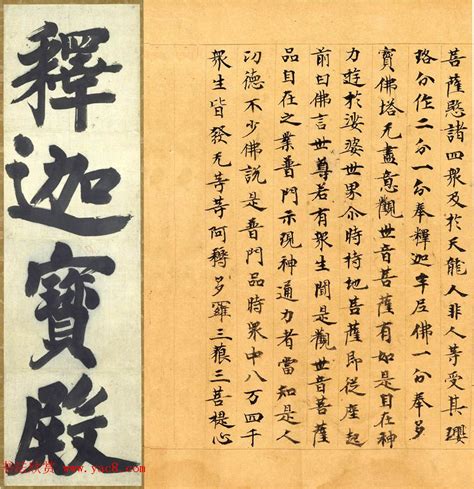 菩薩愍諸四衆及於天龍人非人等受其瓔
珞分作二分一分奉釋迦牟尼佛一分奉多
寶佛塔无盡意觀世音菩薩有如是自在神
力遊於娑婆世界尒時持地菩薩即從座起
前白佛言世尊若有衆生聞是觀世音菩薩
品自在之業普門示現神通力者當知是人
功德不少佛說是普門品時衆中八万四千
衆生皆發无等等阿耨多羅三藐三菩提心
釋迦寶殿
书法欣赏 www.yac8.com